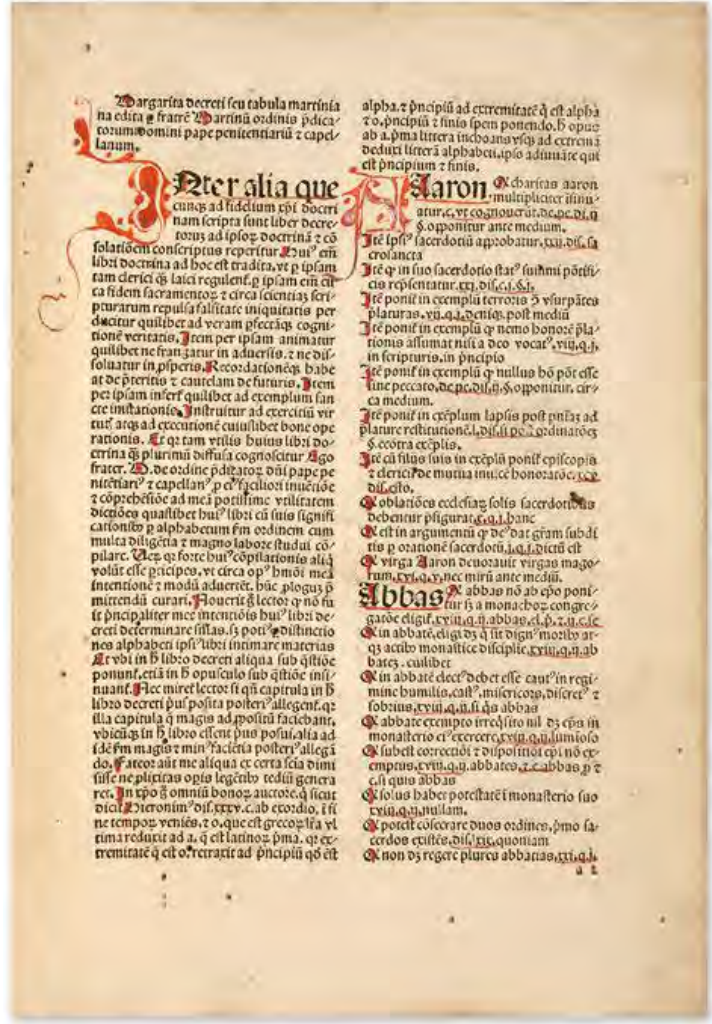 Margarita decreti seu tabula martinia
na edita ꝑ fratrē Martinū ordinis p̄dica-
torum domini pape penitentiariū ⁊ capel-
lanum.
INter alia que
cunqꝫ ad fidelium xp̄i doctri
nam scripta sunt liber decre-
torum ad ipsoꝝ doctrinā ⁊ cō
solatiōem conscriptus reperitur. Huiꝰ em̄
libri doctrina ad hoc est tradita, vt ꝑ ipsam
tam clerici qꝫ laici regulent᷑. ꝑ ipsam em̄ cir
ca fidem sacramentoꝝ ⁊ circa scientias scri-
pturarum repulsa falsitate iniquitatis per
ducitur quilibet ad veram ꝑfectāqꝫ cogni-
tionē veritatis. Item per ipsam animatur
quilibet ne frangatur in aduersis. ⁊ ne dis-
soluatur in ꝓsperis. Recordationēqꝫ habe
at de p̄teritis ⁊ cautelam de futuris. Item
per ipsam infert᷑ quilibet ad exemplum san
cte imitationis. Instruitur ad exercitiū vir
tut᷑ atqꝫ ad executionē cuiuslibet bone ope
rationis. Et qꝛ tam vtilis huius libri do-
ctrina qꝫ plurimū diffusa cognoscitur Ego
frater. M. de ordine p̄dicatoꝝ dn̄i pape pe
nitētiariꝰ ⁊ capellanꝰ. ꝓ faciliori inuētiōe
⁊ cōprehēsiōe ad meā potissime vtilitatem
dictiōes quaslibet huiꝰ libri cū suis signifi
cationibꝰ ꝑ alphabetum s̄m ordinem cum
multa diligētia ⁊ magno labore studui cō-
pilare. Uerū qꝛ forte huiꝰ cōpilationis aliq̄
volūt esse p̄ticipes. vt circa opꝰ hmōi meā
intentionē ⁊ modū aduertēt. hūc ꝓlogum p̄
mittendū curaui. Nouerit ḡ lector ꝙ nō fu
it p̄ncipaliter mee intentiōis huiꝰ libri de-
creti determinare sn̄ias. sꝫ potiꝰ ꝑ distinctio
nes alphabeti ipsiꝰ libri intimare materias
Et vbi in h̄ libro decreti aliqua sub q̄stiōe
ponunt᷑. etiā in h̄ opusculo sub q̄stiōe insi-
nuant᷑. Nec miret᷑ lector si qn̄ capitula in h̄
libro decreti priꝰ posita posteriꝰ allegent᷑. qꝛ
illa capitula q̄ magis ad ꝓpositū faciebant.
vbicūqꝫ in h̄ libro essent priꝰ posui. alia ad
idē s̄m magis ⁊ minꝰ faciētia posteriꝰ allegā
do. Fateor aūt me aliqua ex certa scia dimi
sisse ne ꝓlixitas opis legētibꝰ tediū genera
ret. In xp̄o ḡ omniū bonoꝝ auctore. q̄ sicut
dicit Hieronimꝰ dis. xxxv. c. ab exordio. ī fi
ne tempoꝝ veniēs. ⁊ o. que est grecoꝝ lr̄a vl
tima reduxit ad a. q̄ est latinoꝝ p̄ma. qꝛ ex-
tremitatē q̄ est o. retraxit ad p̄ncipiū qd̄ ē
alpha. ⁊ p̄ncipiū ad extremitatē q̄ est alpha
⁊ o. p̄ncipiū ⁊ finis spem ponendo. h̄ opus
ab a. p̄ma littera inchoans vsqꝫ ad extremā
deduxi litterā alphabeti. ipso adiuuāte qui
est p̄ncipium ⁊ finis.
AAaron Q charitas aaron
multipliciter insinu-
atur. c. vt cognouerūt. de pe. di. ij
§. opponitur ante medium.
Itē ipsiꝰ sacerdotiū approbatur. xxij. dis. sa
crosancta
Itē ꝙ in suo sacerdotio statꝰ summi pōtifi-
cis rep̄sentatur. xxj. dis. c. j. §. j.
Itē ponit᷑ in exemplū terroris ꝯ̄ vsurpātes
p̄laturas. vij. q. j. deniqꝫ. post mediū
Itē ponit᷑ in exemplū ꝙ nemo honorē p̄la-
tionis assumat nisi a deo vocatꝰ. viij. q. j.
in scripturis. in p̄ncipio
Itē ponit᷑ in exemplū ꝙ nullus hō pōt esse
sine peccato. de pe. dis. ij. §. opponitur. cir-
ca medium.
Itē ponit᷑ in exēplum lapsus post pn̄iaꝫ ad
p̄lature restitutionē. l. dis. si po. ⁊ ordinatōeꝫ
§. ecōtra exēplis.
Itē cū filijs suis in exēplū ponit᷑ episcopis
⁊ clericis de mutua inuicē honoratōe. xcv.
dis. esto.
Q oblatiōes ecclesiaꝝ solis sacerdotibus
debentur p̄figurat᷑. x. q. j. hanc
Q est in argumentū ꝙ deꝰ dat gr̄am subdi
tis ꝑ orationē sacerdotū. j. q. j. dictū est
Q virga Aaron deuorauit virgas mago-
rum. xxvi. q. v. nec mirū ante mediū.
Abbas Q abbas nō ab ep̄o poni-
tur sꝫ a monachoꝝ congre-
gatōe eligit᷑. xviij. q. ij. abbas. el. p. ⁊. ij. c. se
Q in abbatē. eligi dꝫ q̄ sit dignꝰ moribꝰ at-
qꝫ actibꝰ monastice discipline. xviij. q. ij. ab
bateꝫ. cuilibet
Q in abbatē electꝰ debet esse cautꝰ in regi-
mine humilis. castꝰ. misericors. discretꝰ ⁊
sobrius. xviij. q. ij. si q̄s abbas
Q abbate exempto irreq̄sito nil dꝫ ep̄s in
monasterio eiꝰ exercere. xviij. q. ij. luminoso
Q subest correctiōi ⁊ dispositiōi ep̄i nō ex-
emptus. xviij. q. ij. abbates. ⁊. c. abbas. p ⁊
c. si quis abbas
Q solus habet potestatē ī monasterio suo
xviij. q. ij. nullam.
Q potest cōsecrare duos ordines. p̄mo sa-
cerdos existēs. dis. lxix. quoniam
Q non dꝫ regere plures abbatias. xxi. q. j.
a 2